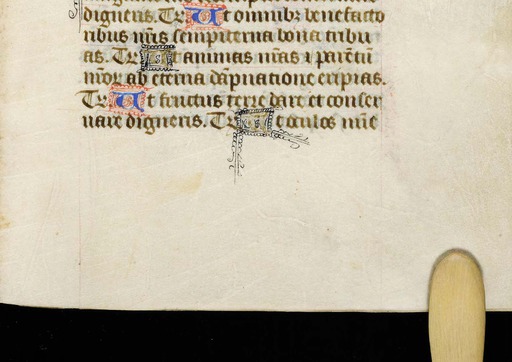 digneris. Te Ut omnibꝫ benefacto
ribus nr̄is sempiterna bona tribu
as. Te Ut animas nr̄as ⁊ parētū
nr̄or̄ ab eterna dāpnatione eripias.
Te Ut fructus terre dare et conser
uare digneris. Te Ut oculos mīe